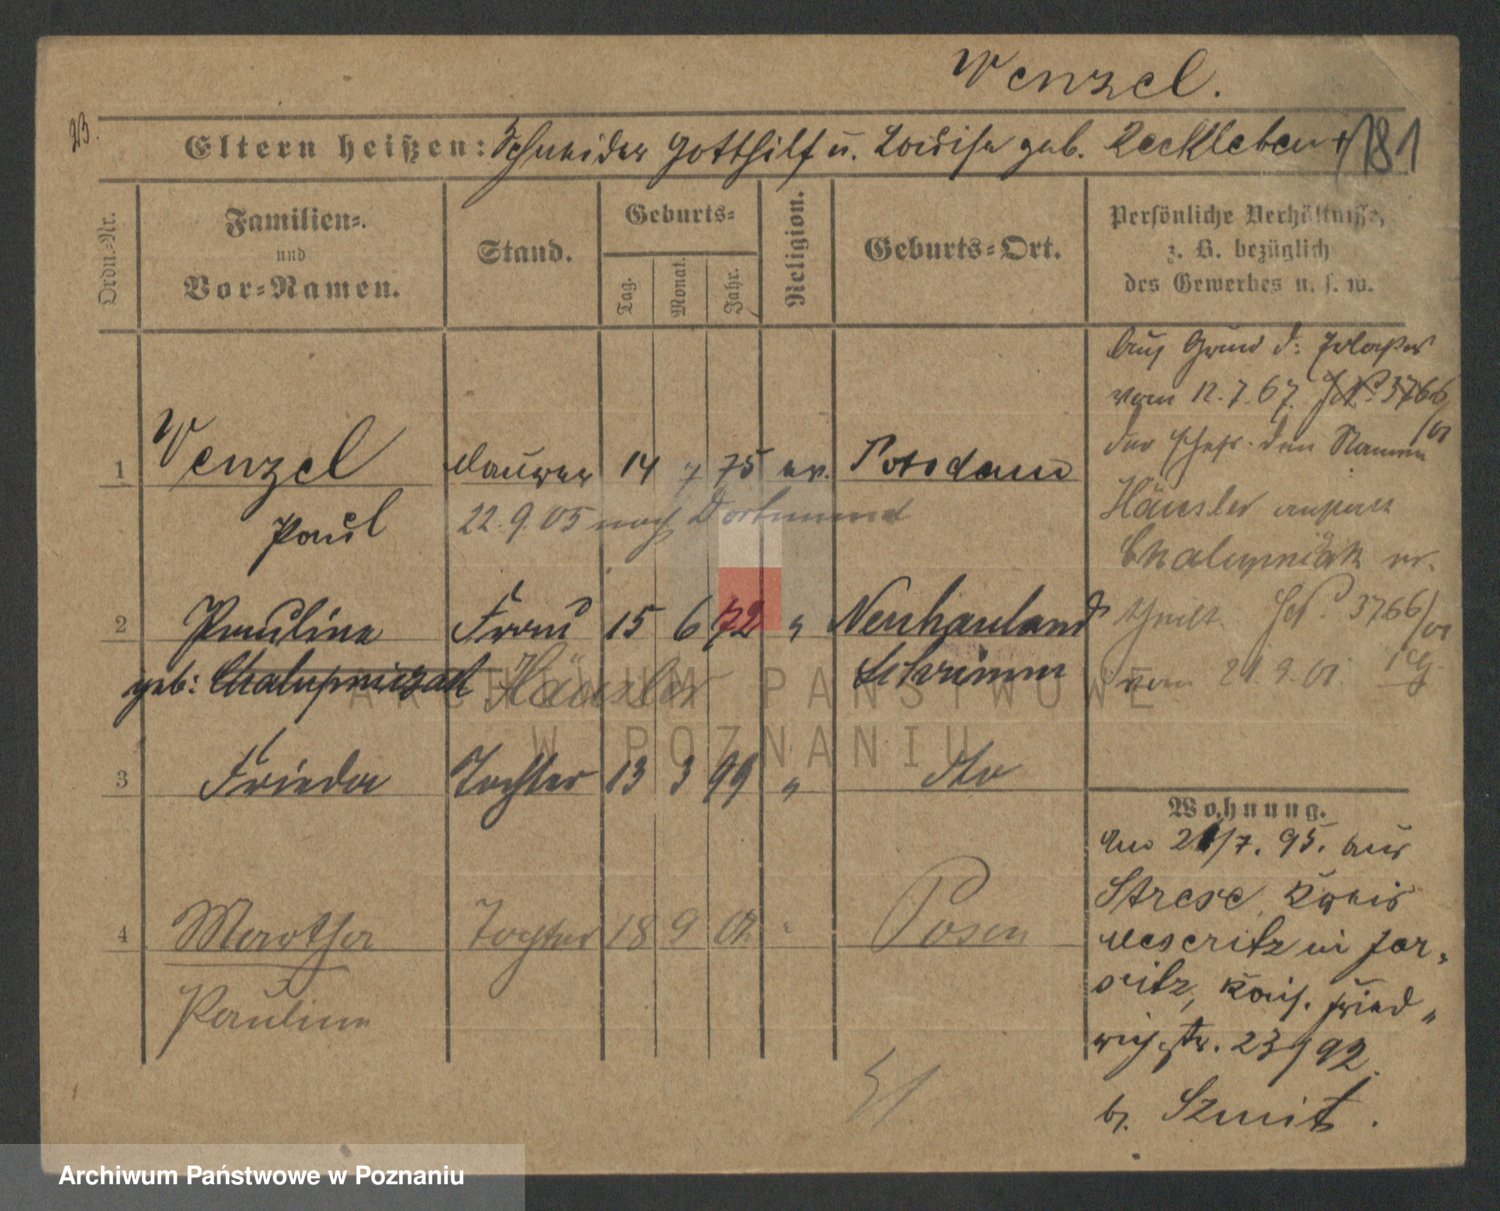 Wenzel.
23.
Eltern heißen: Schneider Gotthilf u. Louise geb. Reckleben
181
Ordn.-Nr.
Familien-
und
Vor-Namen.
Stand.
Geburts-
Tag.
Monat.
Jahr.
Religion.
Geburts-Ort.
Persönliche Verhältnisse,
z. B. bezüglich
des Gewerbes u. s. w.
Auf Grund d.
vom 12.7.67. J.N° 3766/01
den Namen
Häusler
Chalupniak
J.N° 3766/01
vom 21.9.01
1 Wenzel Maurer 14 7 75 ev. Potsdam
Paul 22.9.05 nach Dortmund
2 Pauline Frau 15 6 72 " Neuhauland
geb: Chalupniczack Häusler Schrimm
3 Frieda Tochter 13 3 99 " dto
4 Martha Tochter 18 9 02 " Posen
Pauline
Wohnung.
Am 21/7. 95. aus
Strese, Kreis
Meseritz in Jer-
sitz, Kais. Fried-
richstr. 23/92.
b. Szmit.
ARCHIWUM PAŃSTWOWE
W POZNANIU
Archiwum Państwowe w Poznaniu